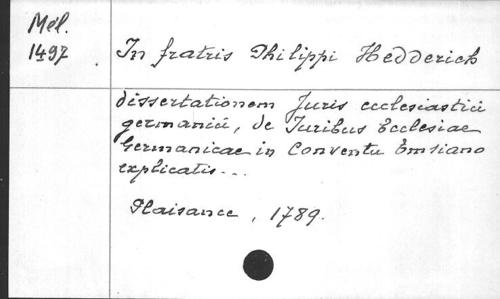 Mél.
1497
In fratris Philippi Hedderich
dissertationem Juris ecclesiastici
germanici, de Juribus Ecclesiae
Germanicae in Conventu Emsiano
explicatis...
Plaisance, 1789.